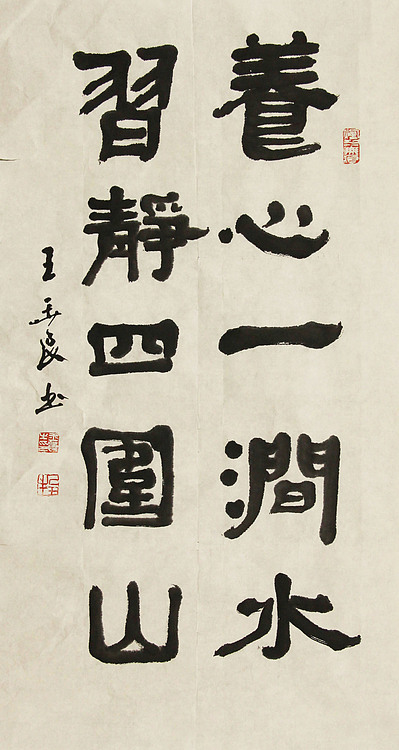 養心一澗水
習靜四圍山
王五良书